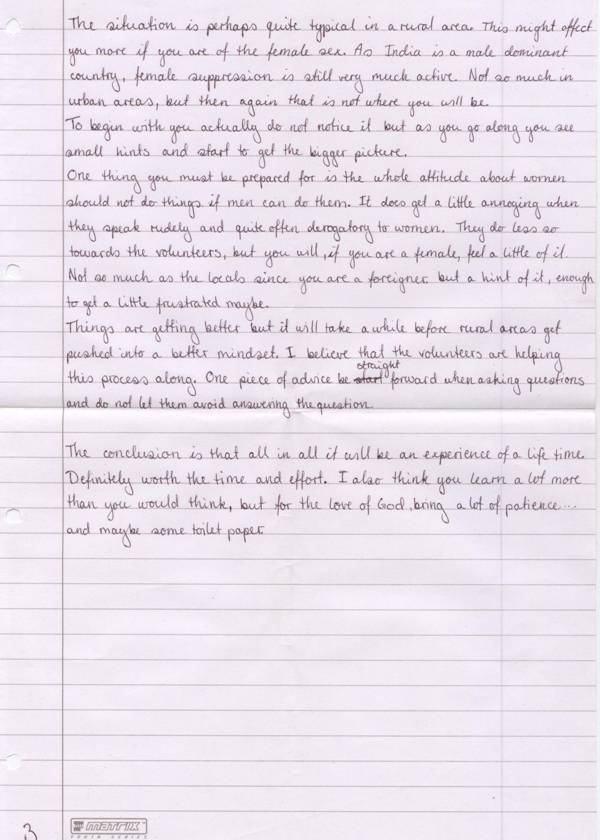 The situation is perhaps quite typical in a rural area. This might affect
you more if you are of the female sex. As India is a male dominant
country, female suppression is still very much active. Not so much in
urban areas, but then again that is not where you will be.
To begin with you actually do not notice it but as you go along you see
small hints and start to get the bigger picture.
One thing you must be prepared for is the whole attitude about women
should not do things if men can do them. It does get a little annoying when
they speak rudely and quite often derogatory to women. They do less so
towards the volunteers, but you will, if you are a female, feel a little of it.
Not so much as the locals since you are a foreigner but a hint of it, enough
to get a little frustrated maybe.
Things are getting better but it will take a while before rural areas get
pushed into a better mindset. I believe that the volunteers are helping
straight
this process along. One piece of advice be start forward when asking questions
and do not let them avoid answering the question.
The conclusion is that all in all it will be an experience of a life time.
Definitely worth the time and effort. I also think you learn a lot more
than you would think, but for the love of God, bring a lot of patience...
and maybe some toilet paper.
3
matrix